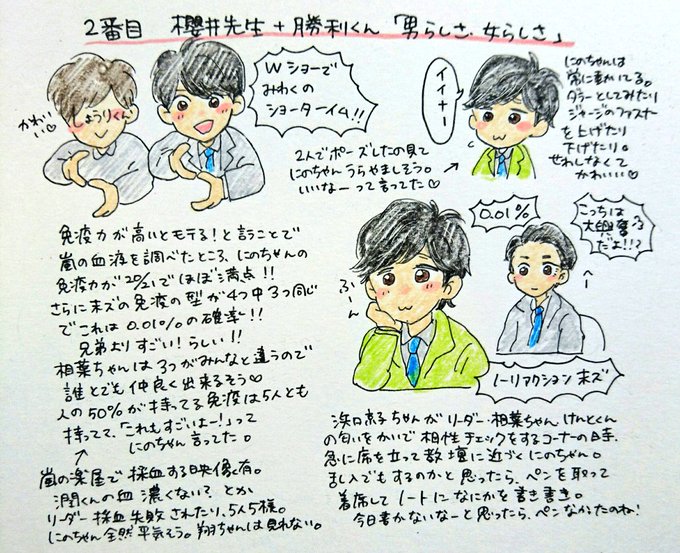 2番目 櫻井先生+勝利くん「男らしさ・女らしさ」
かわいい♡
しょうりくん
Wショーで
みわくの
ショータイム!!
イイナー
にのちゃんは
常に動いてる。
ダラーとしてみたり
ジャージのファスナー
を上げたり
下げたり。
せわしなくて
かわいい♡
2人でポーズしたの見て
にのちゃんうらやましそう。
いいなーって言ってた♡
免疫力が高いとモテる!と言うことで
嵐の血液を調べたところ、にのちゃんの
免疫力が20/21でほぼ満点!!
さらに末ズの免疫の型が4つ中3つ同じ
でこれは0.01%の確率!!
兄弟よりすごい!らしい!!
相葉ちゃんは3つがみんなと違うので
誰とでも仲良く出来るそう♡
人の50%が持ってる免疫は5人とも
持ってて、「これもすごいよー!」って
にのちゃん言ってた。
嵐の楽屋で採血する映像有。
潤くんの血濃くない?とか
リーダー採血失敗されたり、5人5様。
にのちゃん全然平気そう。翔ちゃんは見れない。
ふーん
0.01%
こっちは
大興奮
だよ!!?
ノーリアクション末ズ
浜口京子ちゃんがリーダー・相葉ちゃん・けんとくん
の匂いをかいで相性チェックをするコーナーの時、
急に席を立って教壇に近づくにのちゃん。
まし入でもするのかと思ったら、ペンを取って
着席してノートになにかを書き書き。
今日書かないなーと思ったら、ペンなかったのね!